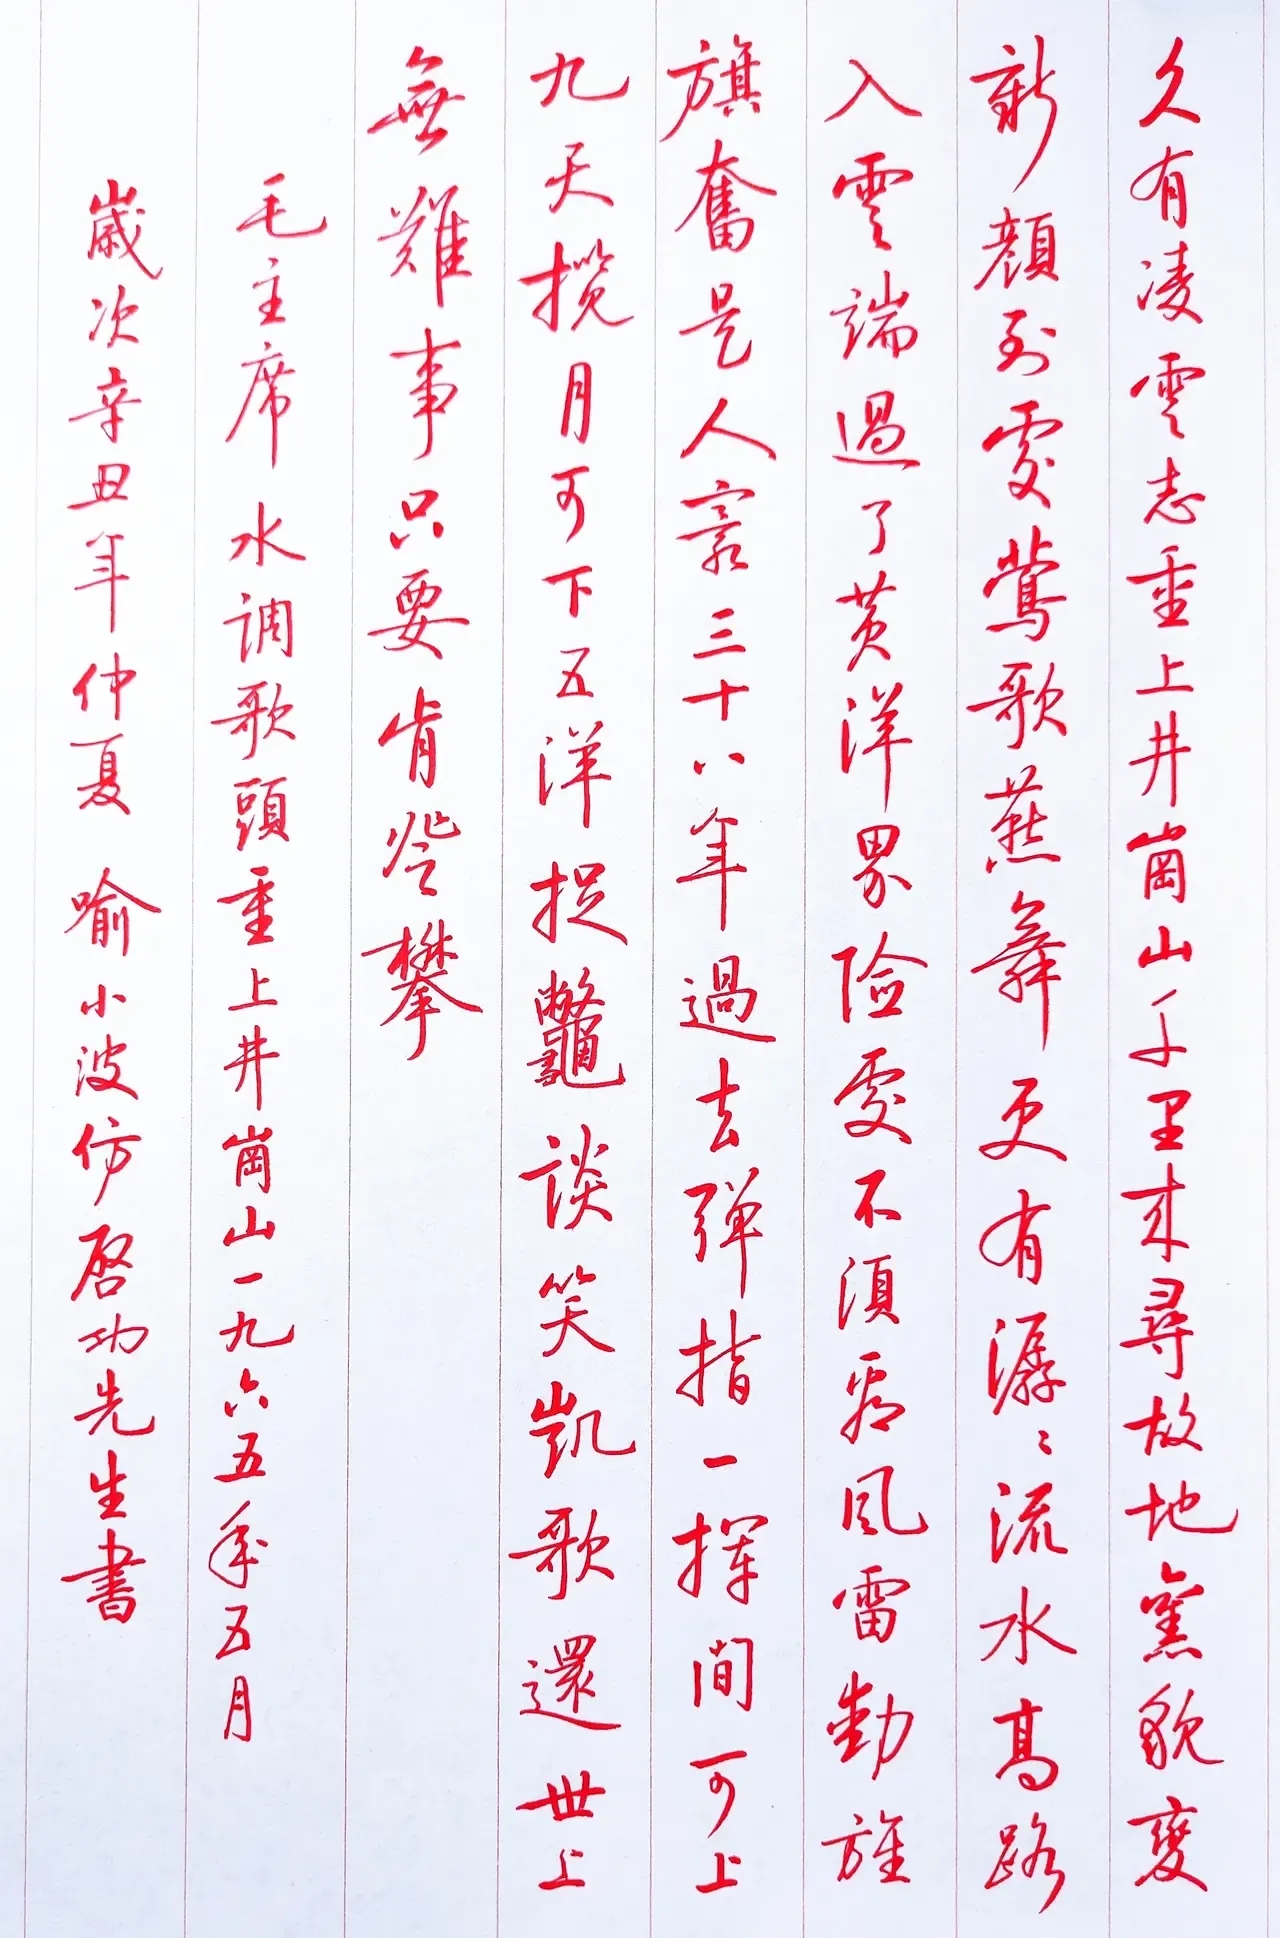 久有凌雲志重上井崗山千里来尋故地舊貌變
新顔到處鶯歌燕舞更有潺〻流水高路
入雲端過了黄洋界险處不須看風雷動旌
旗奮是人寰三十八年過去弹指一揮間可上
九天揽月可下五洋捉鼈談笑凱歌還世上
無難事只要肯登攀
毛主席水调歌頭重上井崗山一九六五年五月
歲次辛丑年仲夏 喻小波仿啓功先生書